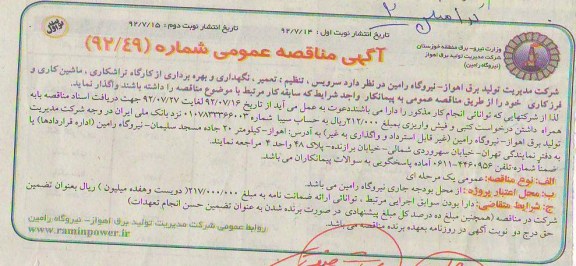 تاریخ انتشار نوبت اول : ۹۲/۷/۱۴
تاریخ انتشار نوبت دوم : ۹۲/۷/۱۵
نوبت اول
وزارت نیرو- برق منطقه خوزستان
شرکت مدیریت تولید برق اهواز
(نیروگاه رامین)
آگهی مناقصه عمومی شماره (۹۲/۴۹)
شرکت مدیریت تولید برق اهواز-نیروگاه رامین در نظر دارد سرویس ، تنظیم ، تعمیر ، نگهداری و بهره برداری از کارگاه تراشکاری ، ماشین کاری و
فرز کاری خود را از طریق مناقصه عمومی به پیمانکار واجد شرایط که سابقه کار مرتبط با موضوع مناقصه را داشته باشند واگذار نماید.
لذا از شرکتهایی که توانائی انجام کار مذکور را دارا می باشند دعوت به عمل می آید از تاریخ ۹۲/۰۷/۱۶ لغایت ۹۲/۰۷/۲۷ جهت دریافت اسناد مناقصه با به
همراه داشتن درخواست کتبی و فیش واریزی بمبلغ ۲۱۲/۰۰۰ ریال به حساب سیبا شماره ۰۱۰۷۸۳۳۳۶۶۰۰۳ نزد بانک ملی ایران در وجه شرکت مدیریت
تولید برق اهواز- نیروگاه رامین (غیر قابل استرداد و واگذاری به غیر) به آدرس: اهواز-کیلومتر ۲۰ جاده مسجد سلیمان- نیروگاه رامین (اداره قراردادها) یا
به دفتر نمایندگی تهران- خیابان سهروردی شمالی- خیابان برازنده- پلاک ۴۸ واحد ۴ مراجعه نمایند.
ضمنا شماره تلفن ۴۴۶۰۹۵۶-۰۶۱۱ آماده پاسخگویی به سوالات پیمانکاران می باشد.
الف: نوع مناقصه: عمومی یک مرحله ای
ب: محل اعتبار پروژه : از محل بودجه جاری نیروگاه رامین می باشد.
ج: شرایط متقاضی: دارا بودن سوابق اجرایی مرتبط ، توانائی ارائه ضمانت نامه به مبلغ ۲۱۷/۰۰۰/۰۰۰ (دویست و هفده میلیون ) ریال بعنوان تضمین
شرکت در مناقصه (همچنین مبلغ ده درصد کل مبلغ پیشنهادی در صورت برنده شدن به عنوان تضمین حسن انجام تعهدات)
حق درج دو نوبت آگهی در روزنامه بعهده برنده مناقصه می باشد.
روابط عمومی شرکت مدیریت تولید برق اهواز- نیروگاه رامین
www.raminpower.ir